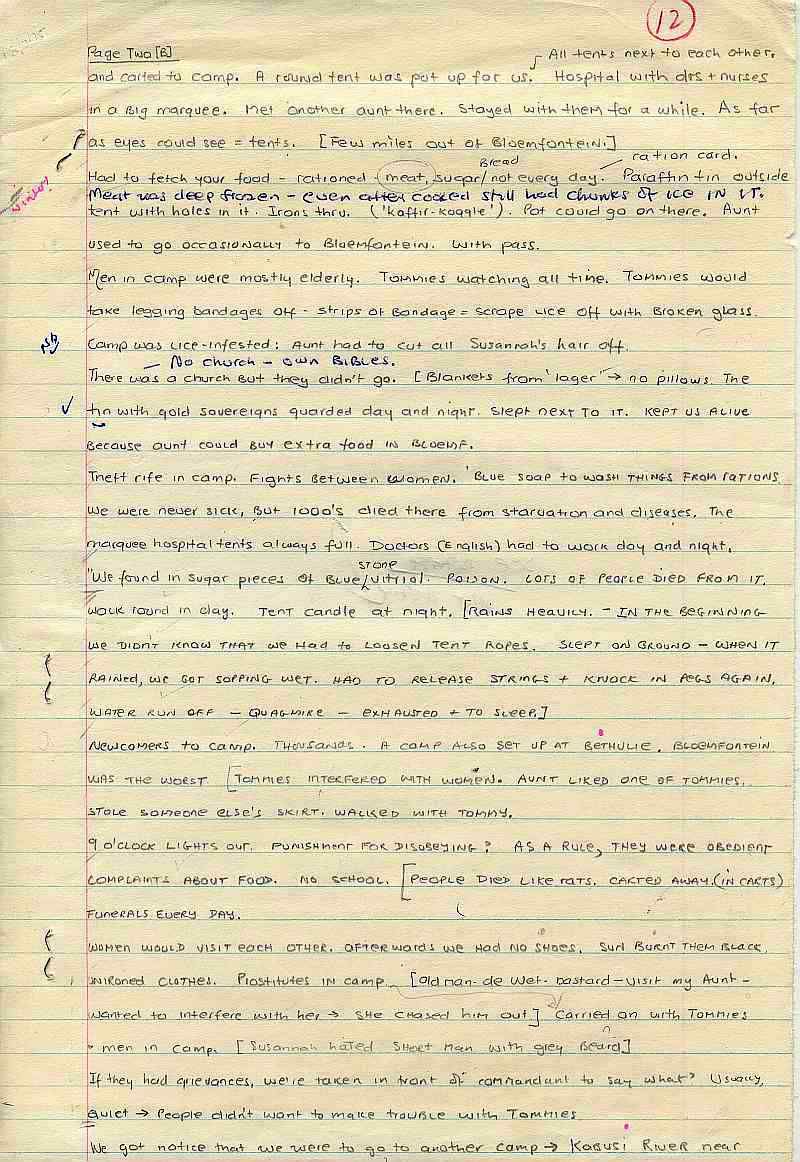 12
Page Two [B]
All tents next to each other.
and carted to camp. A round tent was put up for us. Hospital with drs + nurses
in a big marquee. Met another aunt there. Stayed with them for a while. As far
as eyes could see = tents. [Few miles out of Bloemfontein.]
Bread
ration card.
Had to fetch your food - rationed - meat, sugar / not every day. Paraffin tin outside
Meat was deep frozen - even after cooked still had chunks of ice in it.
tent with holes in it. Irons thru. ('Kaffir-koggle'). Pot could go on there. Aunt
used to go occasionally to Bloemfontein. With pass.
Men in camp were mostly elderly. Tommies watching all time. Tommies would
take legging bandages off - strips of bandage = scrape lice off with broken glass.
Camp was lice-infested: Aunt had to cut all Susannah's hair off.
- No church - own Bibles.
There was a church but they didn't go. [Blankets from 'lager' → no pillows. The
tin with gold sovereigns guarded day and night. Slept next to it. Kept us alive
because aunt could buy extra food in Bloemf.
Theft rife in camp. Fights between women. 'Blue soap to wash things from rations
We were never sick, but 1000's died there from starvation and diseases. The
marquee hospital tents always full. Doctors (English) had to work day and night.
stone
"We found in sugar pieces of blue vitrial. Poison. Lots of people died from it.
Walk round in day. Tent candle at night. [Rains heavily. - In the beginning
we didn't know that we had to loosen tent ropes. Slept on ground - when it
rained, we got sopping wet. Had to release strings + knock in pegs again.
Water run off - quagmire - exhausted + to sleep.]
Newcomers to camp. Thousands. A camp also set up at Bethulie. Bloemfontein
was the worst [Tommies interfered with women. Aunt liked one of Tommies.
Stole someone else's skirt. Walked with Tommy.
9 o'clock lights out. Punishment for disobeying? As a rule, they were obedient
Complaints about food. No school. [People died like rats. Carted away. (in carts)
Funerals every day.
Women would visit each other. Afterwards we had no shoes. Sun burnt them black.
Unironed clothes. Prostitutes in camp. [Old man - de Wet - bastard - visit my Aunt -
wanted to interfere with her → she chased him out] Carried on with Tommies
+ men in camp. [Susannah hated short man with grey beard]
If they had grievances, we're taken in front of commandant to say what? Usually,
quiet → People didn't want to make trouble with Tommies
We got notice that we were to go to another camp → Kabusi River near